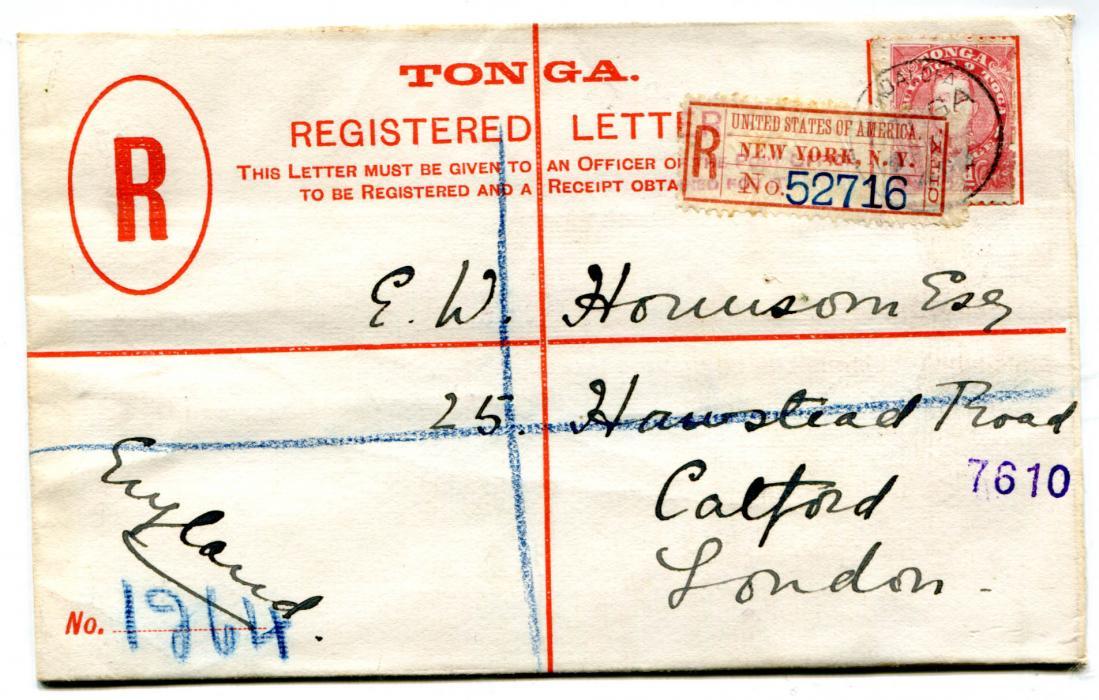 TONGA.
REGISTERED LETTER
THIS LETTER MUST BE GIVEN TO AN OFFICER OF
TO BE REGISTERED AND A RECEIPT OBTA
R
TONGA
R
UNITED STATES OF AMERICA.
NEW YORK, N. Y.
No. 52716
E. W. Esq
25. Hawstead Road
Catford
London.
England.
7610
No.